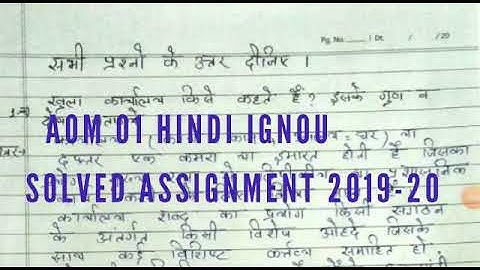 Pg. No. / Dt. / / 20
सभी प्रश्नो के उत्तर दीजिए ।
खुला कार्यालय किसे कहते हैं ? इसके गुण व
AOM 01 HINDI IGNOU
दफ्तर एक कमरा या इमारत होती है जिसका
SOLVED ASSIGNMENT 2019-20
कार्यालय शब्द का प्रयोग किसी संगठन
के अंतर्गत किसी विशेष ओहदे जिसके
साथ कई विशिष्ट कर्तव्य समाहित हो